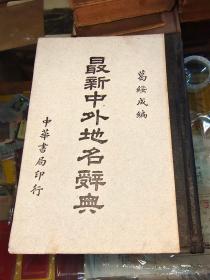 葛綏成編
最新中外地名辭典
中華書局印行